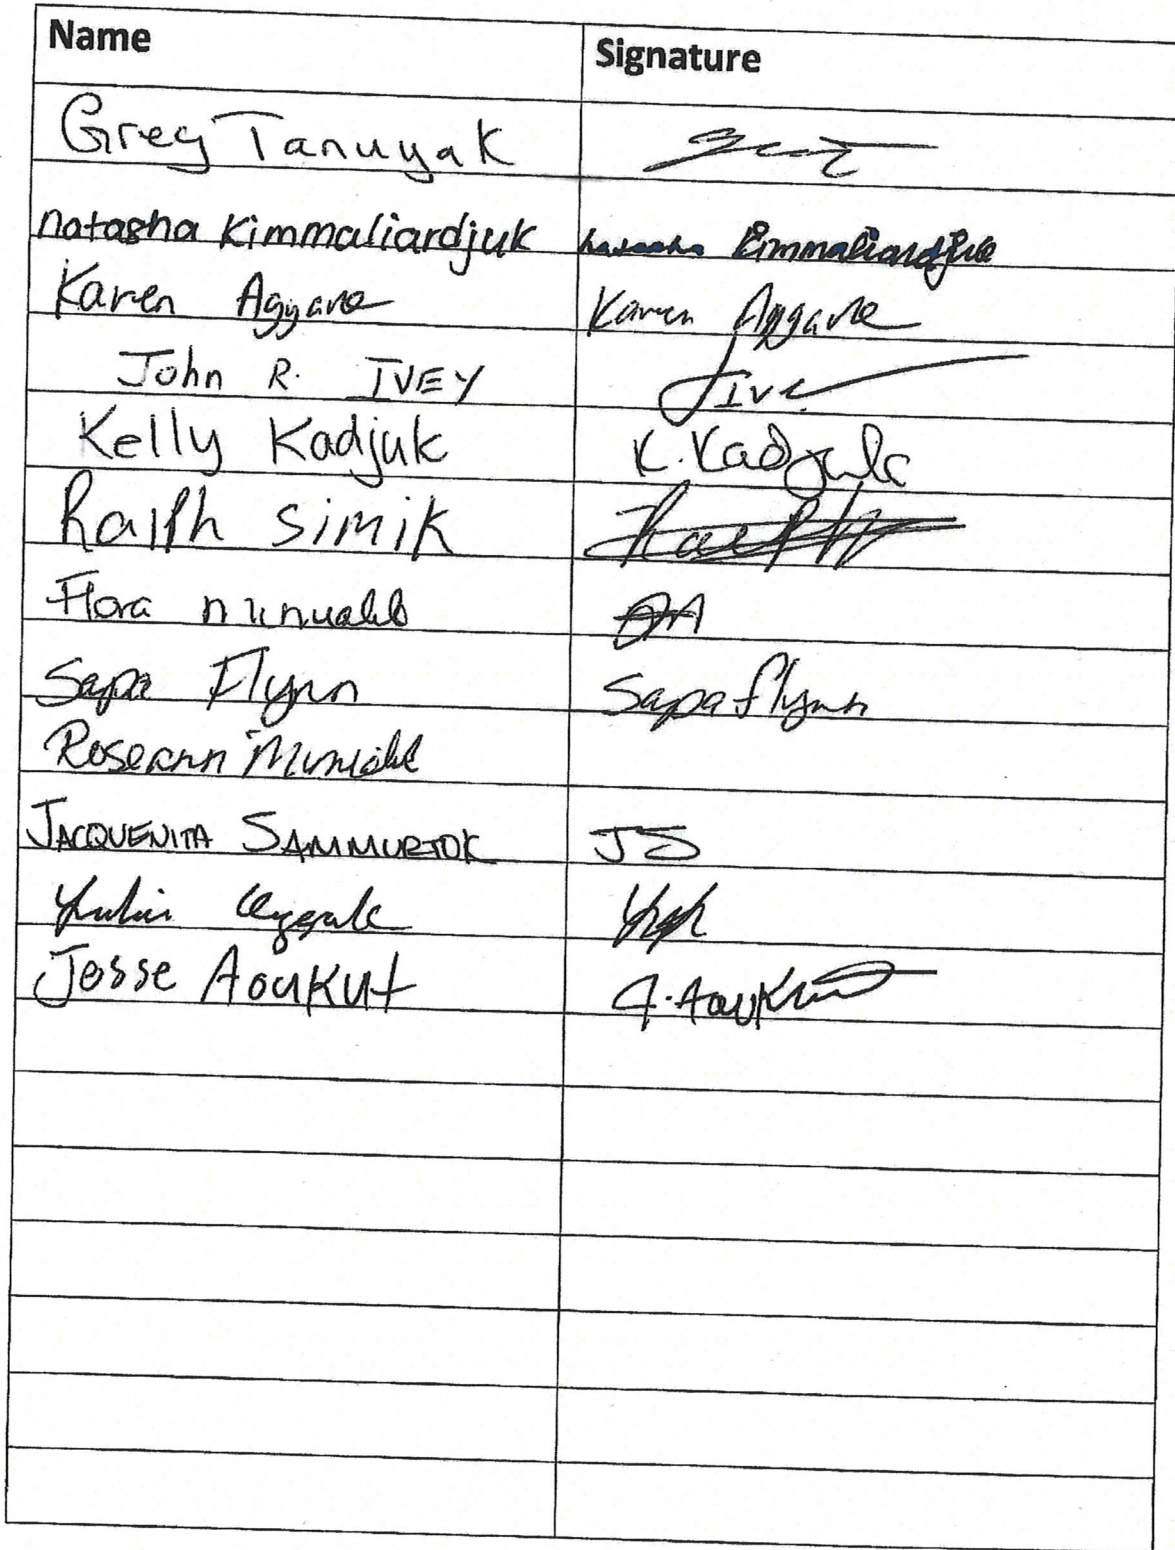 Name Signature
Greg Tanuyak
natasha Kimmaliardjuk natasha Kimmaliardjuk
Karen Aggark Karen Aggark
John R. IVEY J Ivey
Kelly Kadjuk K. Kadjuk
Ralph Simik Ralph
Flora
Sapa Flynn Sapa flynn
Roseann
JACQUENITA SAMMURTOK JS
Jesse Aoukut J. Aoukut